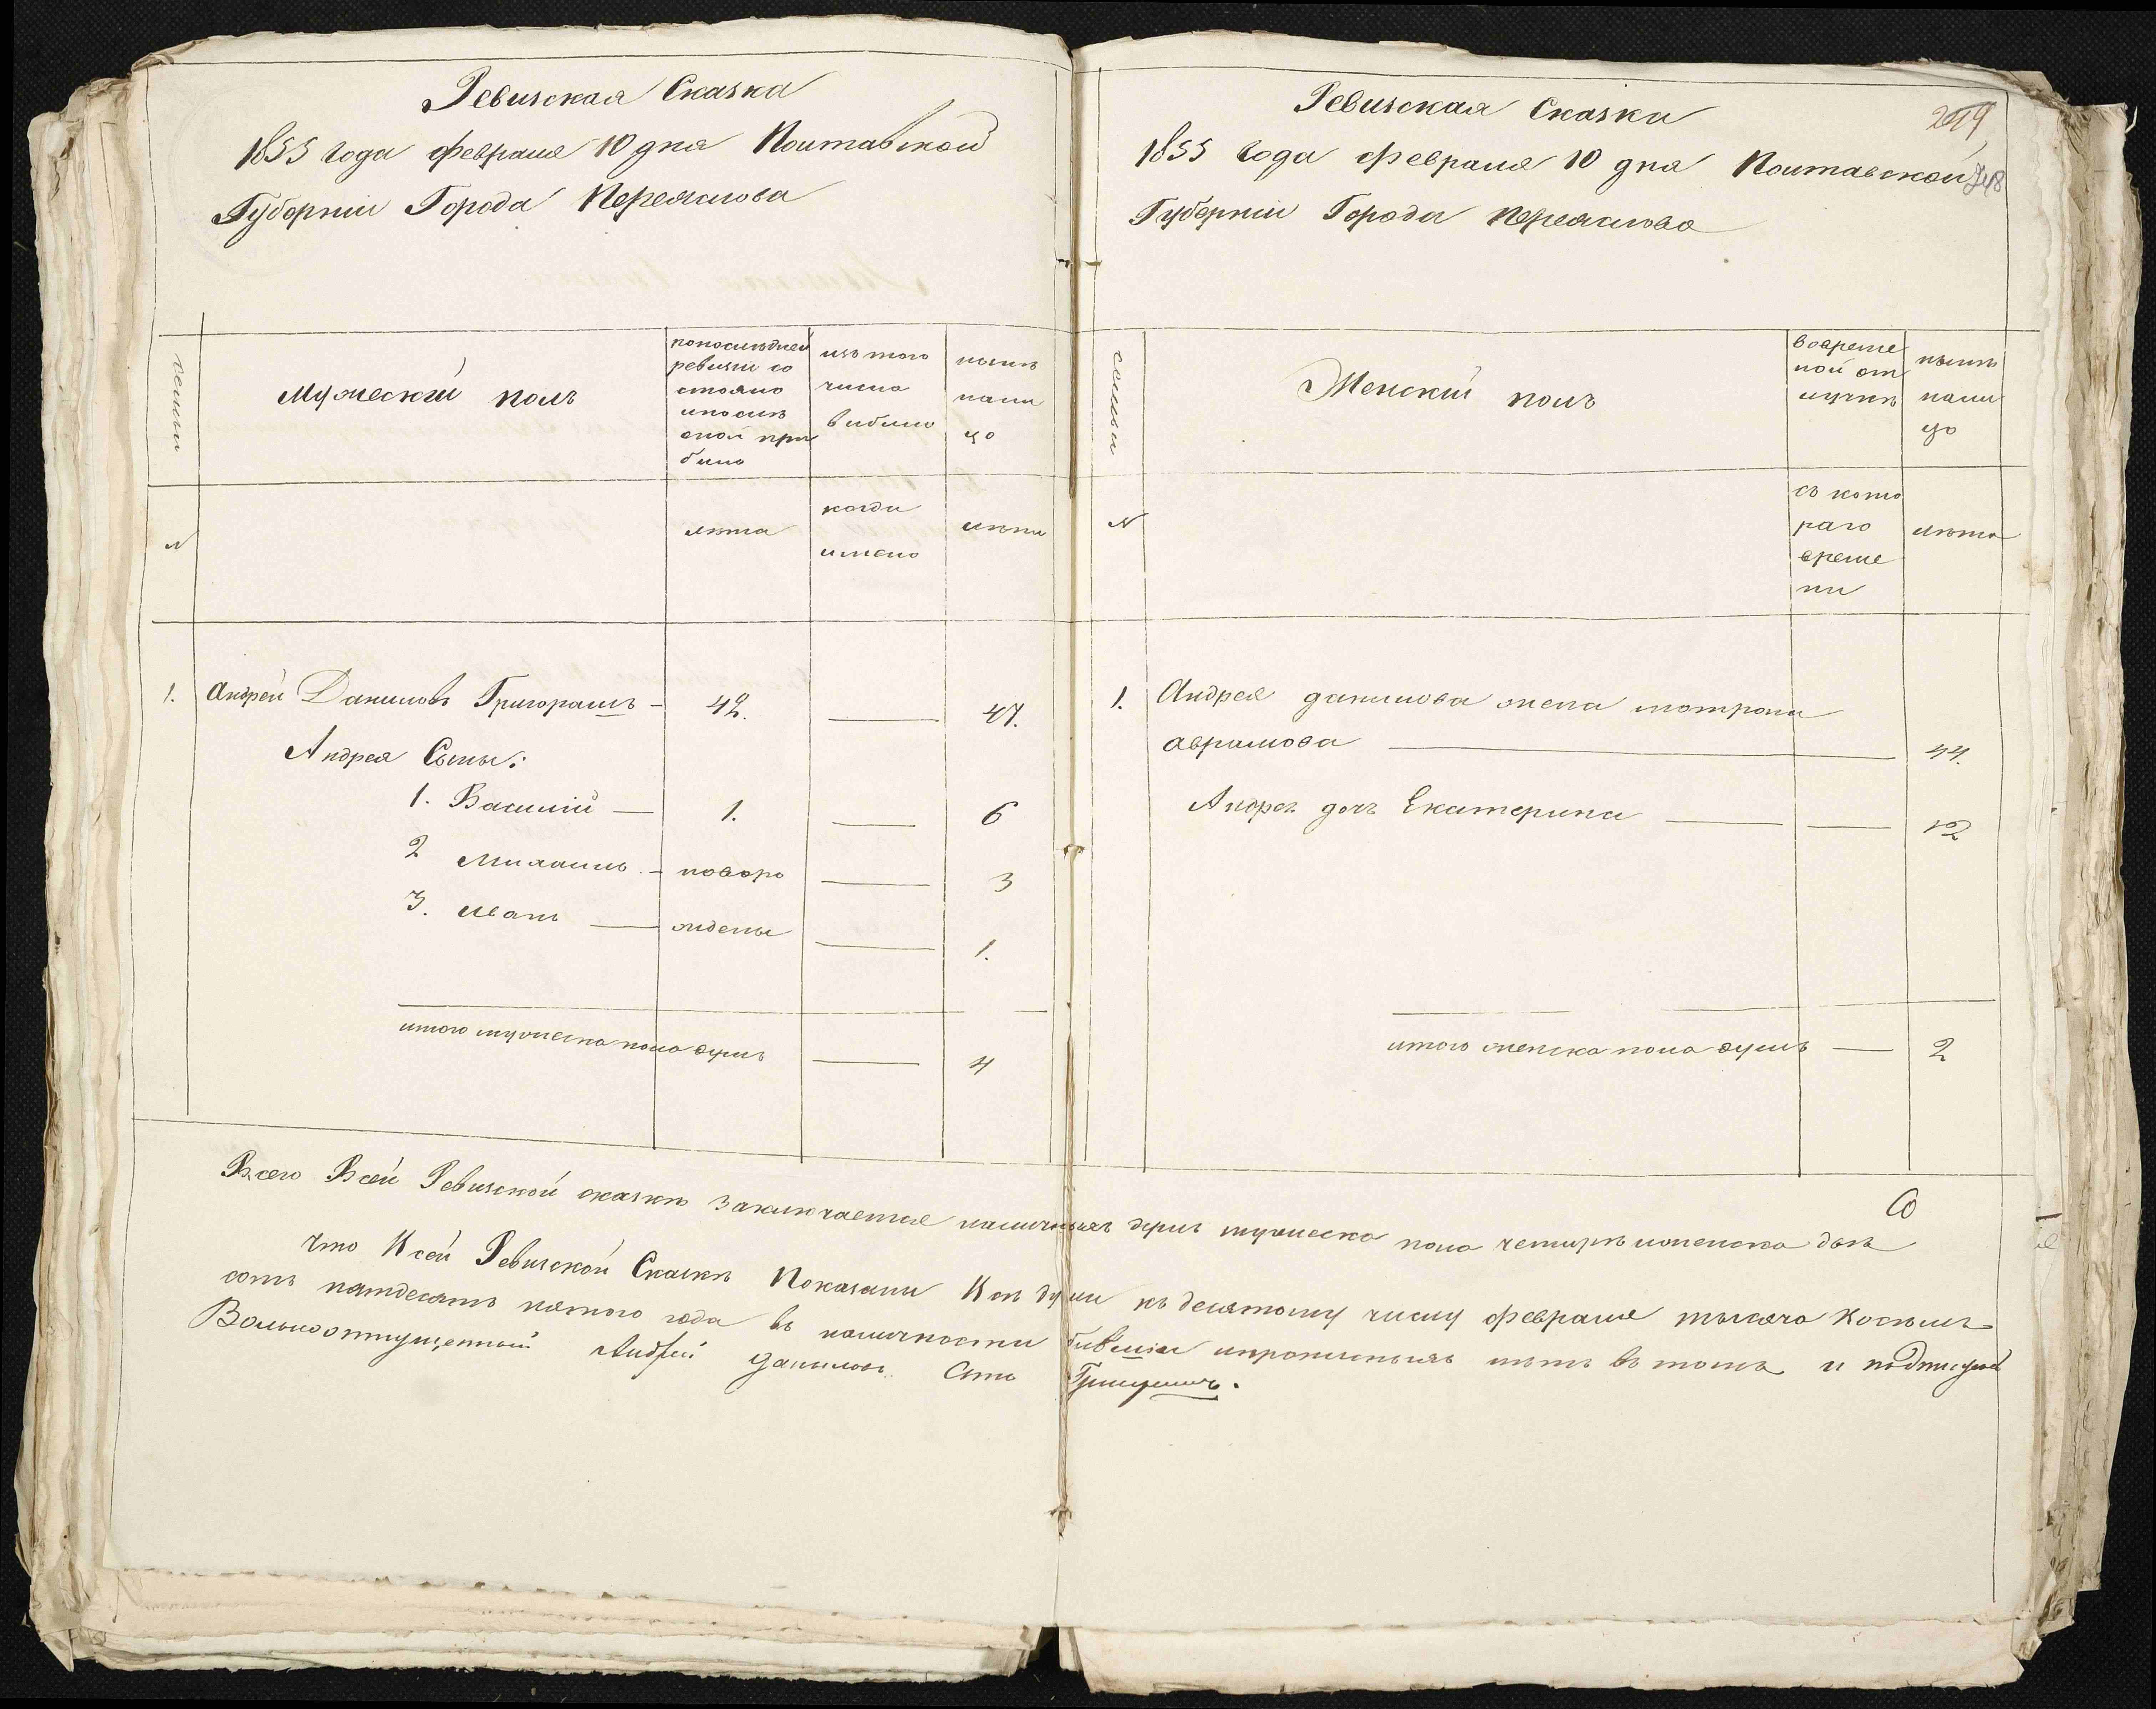 Ревизская Сказка
1855 Года февраля 10 дня Полтавской
Губернии Города Переяслова
семьи
Мужеский полъ
попоследней
ревизи со
стояло
ипослѣ
оной при
было
изъ того
числа
выбило
нынѣ
нали
цо
N
лѣта
когда
имено
лѣта
1. Андрей Даниловъ Григорашъ - 42. — 47.
Андрея Сыны:
1. Василій — 1. — 6
2 Михаилъ - новоро — 3
3. Иванъ — ждены — 1.
итого мужеска пола душъ — 4
Ревизская Сказки
249
1855 Года февраля 10 дня Полтавской 248
Губерніи Города Переяслова
семьи
Женскій полъ
вовреме
ной от
лучкѣ
нынѣ
нали
цо
N
съ кото
раго
време
ни
лѣта
1. Андрея данилова жена мотрона
аврамова — 44.
Андрея дочь Екатерина — — 12
итого женска пола душъ — 2
Всего Всей Ревизской сказкѣ Заключается наличныхъ душъ мужеска пола четырѣ иженска двѣ
Что Ксей Ревизской Сказкѣ Показани Всѣ души къ десятому числу февраля тысяча Восемъ
сотъ пятдесятъ пятого года въ наличности бившіи ипрописныхъ нѣтъ въ томъ и подписуюсь
Вольноотпущенный Андрей Даниловъ Сынъ